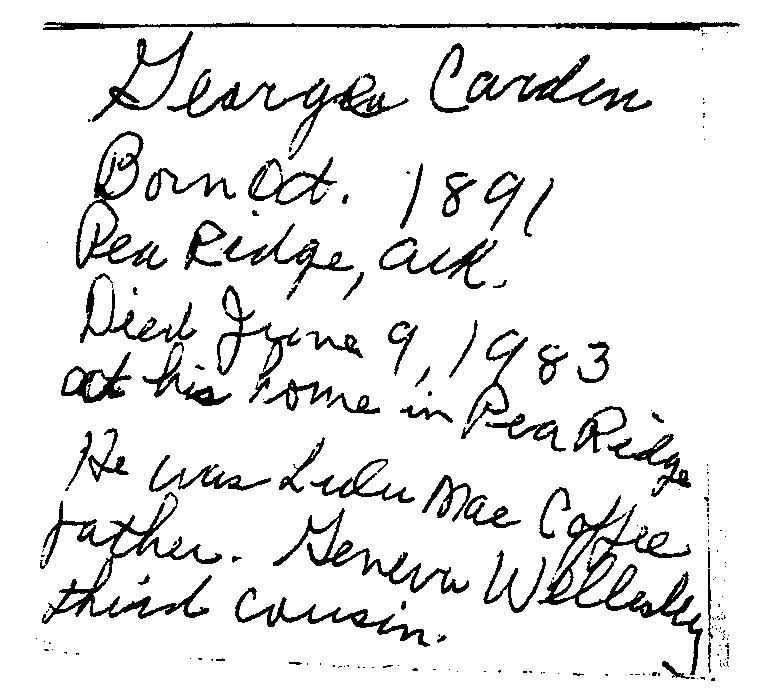 George Carden
Born Oct. 1891
Pea Ridge, Ark.
Died June 9, 1983
at his home in Pea Ridge
He was Lulu Mae Coffee
father. Geneva Wellesley
third cousin.